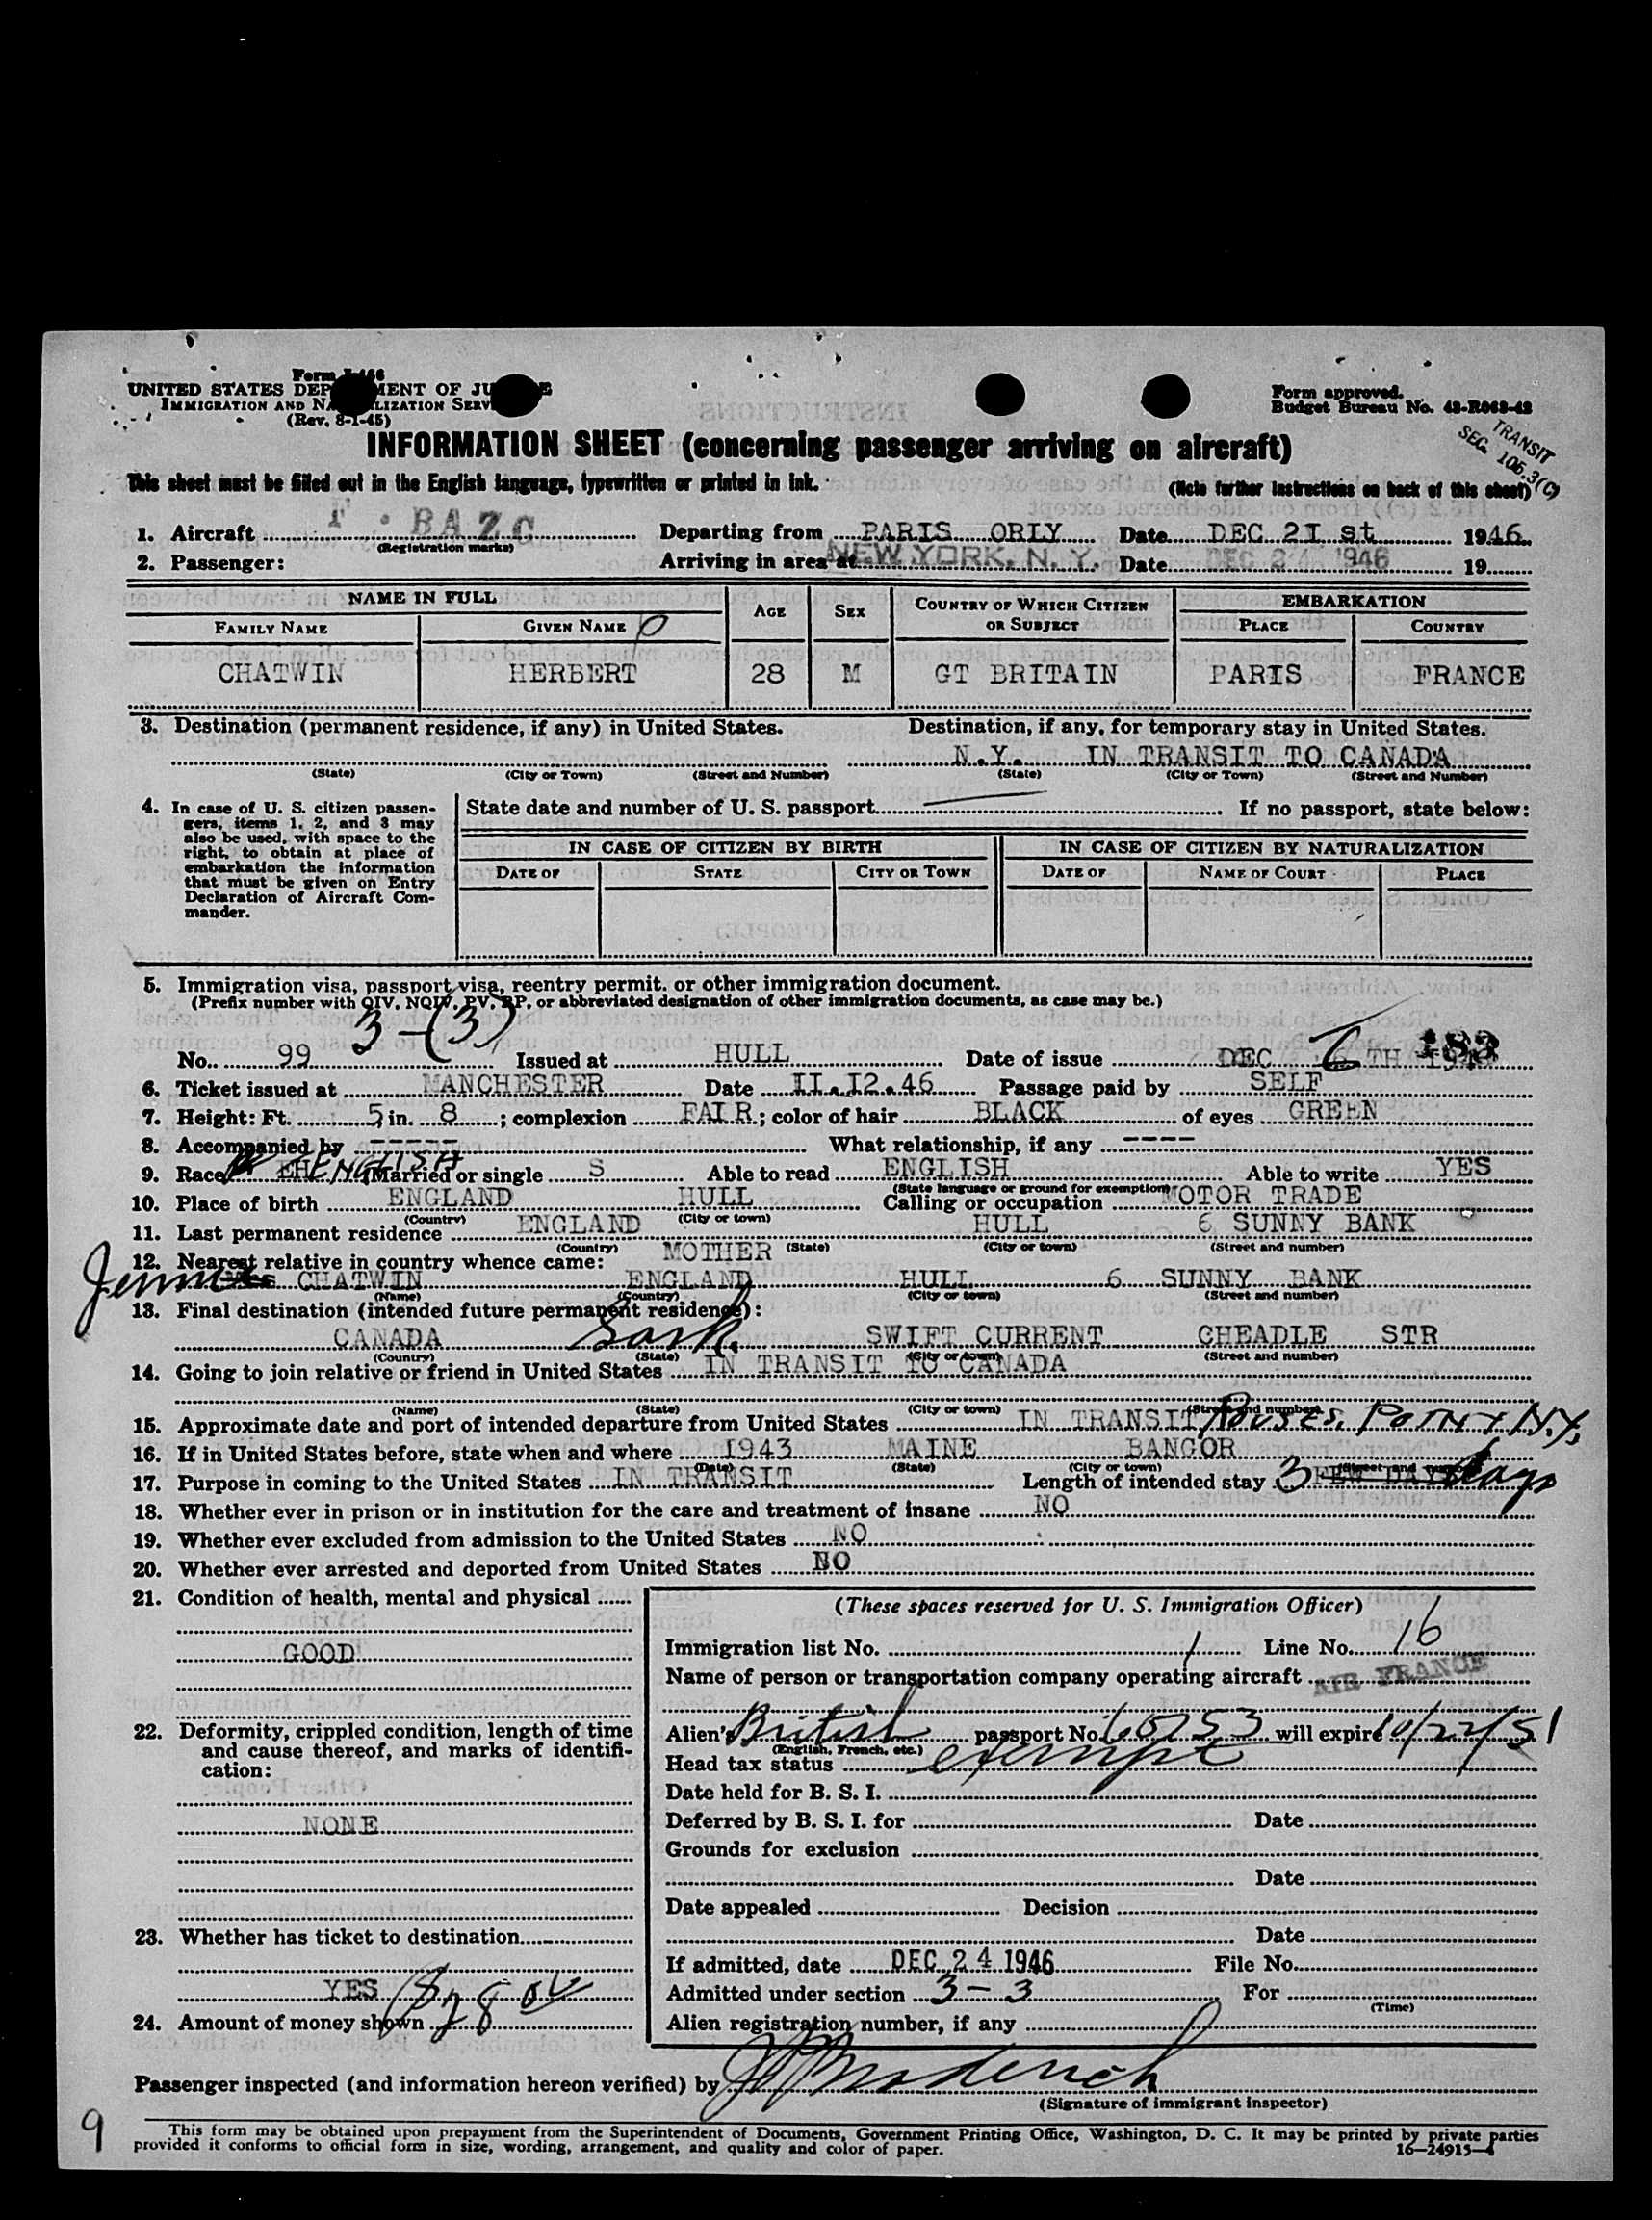 Form I-466
UNITED STATES DEPARTMENT OF JUSTICE
IMMIGRATION AND NATURALIZATION SERVICE
(Rev. 8-1-45)
Form approved.
Budget Bureau No. 43-R063-42
TRANSIT
SEC. 106.3(C)
INFORMATION SHEET (concerning passenger arriving on aircraft)
This sheet must be filled out in the English language, typewritten or printed in ink.
(Note further instructions on back of this sheet)
1. Aircraft F.BAZC Departing from PARIS ORLY Date DEC 2I st 1946
(Registration marks)
2. Passenger: Arriving in area at NEW YORK, N. Y. Date DEC 24 1946 19
NAME IN FULL AGE SEX COUNTRY OF WHICH CITIZEN OR SUBJECT EMBARKATION
FAMILY NAME GIVEN NAME PLACE COUNTRY
CHATWIN HERBERT 28 M GT BRITAIN PARIS FRANCE
3. Destination (permanent residence, if any) in United States. Destination, if any, for temporary stay in United States.
N.Y. IN TRANSIT TO CANADA
(State) (City or Town) (Street and Number) (State) (City or Town) (Street and Number)
4. In case of U. S. citizen passen-
gers, items 1, 2, and 3 may
also be used, with space to the
right, to obtain at place of
embarkation the information
that must be given on Entry
Declaration of Aircraft Com-
mander.
State date and number of U. S. passport If no passport, state below:
IN CASE OF CITIZEN BY BIRTH IN CASE OF CITIZEN BY NATURALIZATION
DATE OF STATE CITY OR TOWN DATE OF NAME OF COURT PLACE
5. Immigration visa, passport visa, reentry permit, or other immigration document.
(Prefix number with QIV, NQIV, PV, RP, or abbreviated designation of other immigration documents, as case may be.)
3-(3)
No. 99 Issued at HULL Date of issue DEC 6 TH 183
6. Ticket issued at MANCHESTER Date II.I2.46 Passage paid by SELF
7. Height: Ft. 5 in. 8 ; complexion FAIR ; color of hair BLACK of eyes GREEN
8. Accompanied by ----- What relationship, if any ----
9. Race ENGLISH Married or single S Able to read ENGLISH Able to write YES
(State language or ground for exemption)
10. Place of birth ENGLAND HULL Calling or occupation MOTOR TRADE
(Country) (City or town)
11. Last permanent residence ENGLAND HULL 6 SUNNY BANK
(Country) (State) (City or town) (Street and number)
12. Nearest relative in country whence came: MOTHER
CHATWIN ENGLAND HULL 6 SUNNY BANK
(Name) (Country) (City or town) (Street and number)
13. Final destination (intended future permanent residence):
CANADA Sask. SWIFT CURRENT CHEADLE STR
(Country) (State) (City or town) (Street and number)
14. Going to join relative or friend in United States IN TRANSIT TO CANADA
(Name) (State) (City or town) (Street and number)
15. Approximate date and port of intended departure from United States IN TRANSIT ROUSES POINT N.Y.
16. If in United States before, state when and where I943 MAINE BANGOR
(Date) (State) (City or town) (Street and number)
17. Purpose in coming to the United States IN TRANSIT Length of intended stay 3 FEW DAYS days
18. Whether ever in prison or in institution for the care and treatment of insane NO
19. Whether ever excluded from admission to the United States NO
20. Whether ever arrested and deported from United States NO
21. Condition of health, mental and physical
GOOD
22. Deformity, crippled condition, length of time
and cause thereof, and marks of identifi-
cation:
NONE
23. Whether has ticket to destination
YES
24. Amount of money shown $78.00
(These spaces reserved for U. S. Immigration Officer)
Immigration list No. 1 Line No. 16
Name of person or transportation company operating aircraft AIR FRANCE
Alien's British passport No. 65753 will expire 10/22/51
(English, French, etc.)
Head tax status exempt
Date held for B. S. I.
Deferred by B. S. I. for Date
Grounds for exclusion
Date
Date appealed Decision
Date
If admitted, date DEC 24 1946 File No.
Admitted under section 3-3 For
(Time)
Alien registration number, if any
Passenger inspected (and information hereon verified) by
(Signature of immigrant inspector)
9
This form may be obtained upon prepayment from the Superintendent of Documents, Government Printing Office, Washington, D. C. It may be printed by private parties
provided it conforms to official form in size, wording, arrangement, and quality and color of paper. 16—24915-4